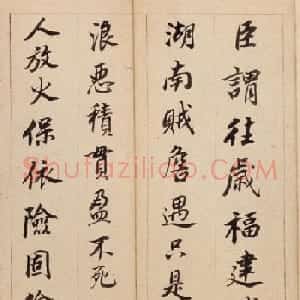 臣謂往歲福建
湖南賊詹遇只是
浪惡積貫盈不死
人放火保依險固
Shufaziliao.com